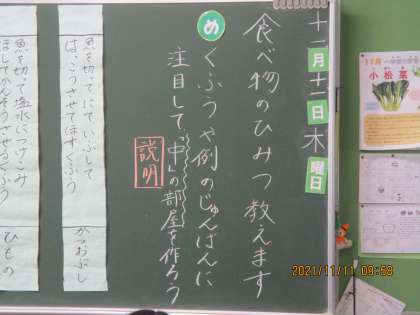 十一月十一日木曜日
食べ物のひみつ教えます
め
くふうや例のじゅんばんに
注目して、「中」の部屋を作ろう
説明
魚を切って、にて、いぶして
は、こうさせてほすくふう
かつおぶし
魚を切って塩水につけこみ
ほしてかんそうさせるくふう
ひもの
11月
小松菜
2021/11/11 09:58